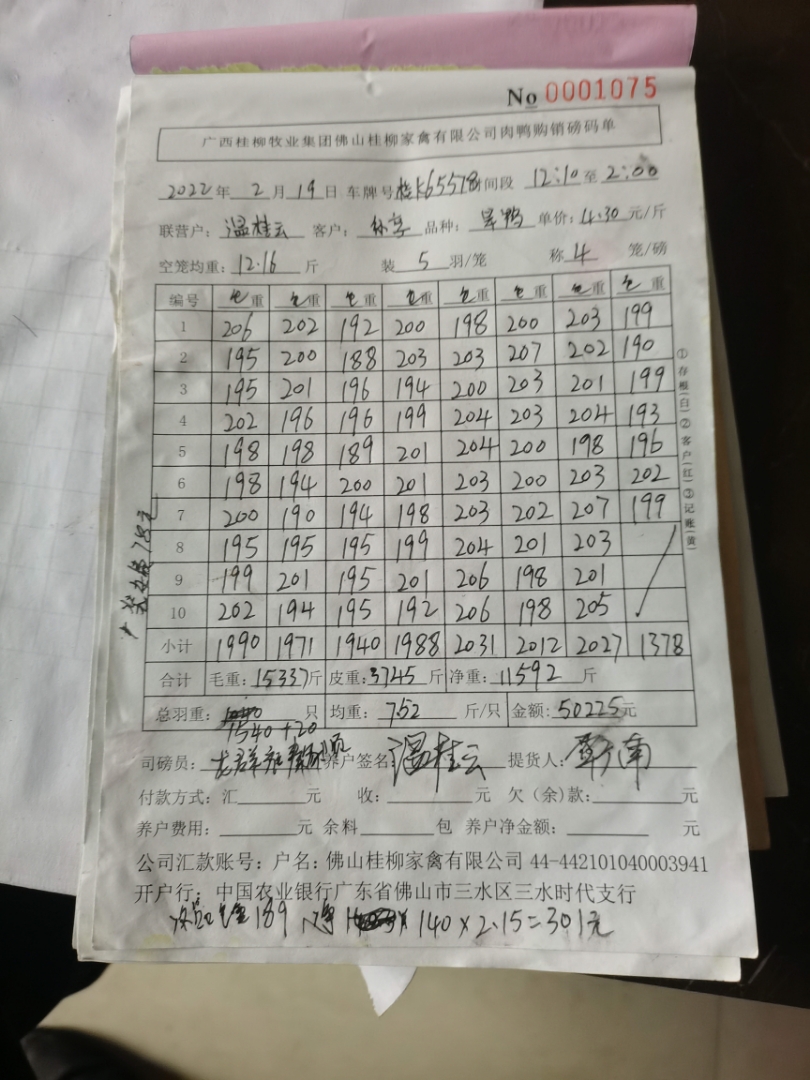 No 0001075
广西桂柳牧业集团佛山桂柳家禽有限公司肉鸭购销磅码单
2022年 2月 19日 车牌号 桂K65578 间段 12:10 至 2:00
联营户: 温桂云 客户: 品种: 鸭 单价: 4.30 元/斤
空笼均重: 12.16 斤 装 5 羽/笼 称 4 笼/磅
编号 毛重 毛重 毛重 毛重 毛重 毛重 毛重 毛重
1 206 202 192 200 198 200 203 199
2 195 200 188 203 203 207 202 190
3 195 201 196 194 200 203 201 199
4 202 196 196 199 204 203 204 193
5 198 198 189 201 204 200 198 196
6 198 194 200 201 203 200 203 202
7 200 190 194 198 203 202 207 199
8 195 195 195 199 204 201 203
9 199 201 195 201 206 198 201
10 202 194 195 192 206 198 205
小计 1990 1971 1940 1988 2031 2012 2027 1378
合计 毛重: 15337 斤 皮重: 3745 斤 净重: 11592 斤
总羽重: 1540+20 只 均重: 752 斤/只 金额: 50225元
司磅员: 养户签名: 温桂云 提货人:
付款方式: 汇 元 收: 元 欠(余)款: 元
养户费用: 元 余料 包 养户净金额: 元
公司汇款账号: 户名: 佛山桂柳家禽有限公司 44-442101040003941
开户行: 中国农业银行广东省佛山市三水区三水时代支行
毛重 189 净 140×2.15=301元
①存根(白)②客户(红)③记账(黄)
78元